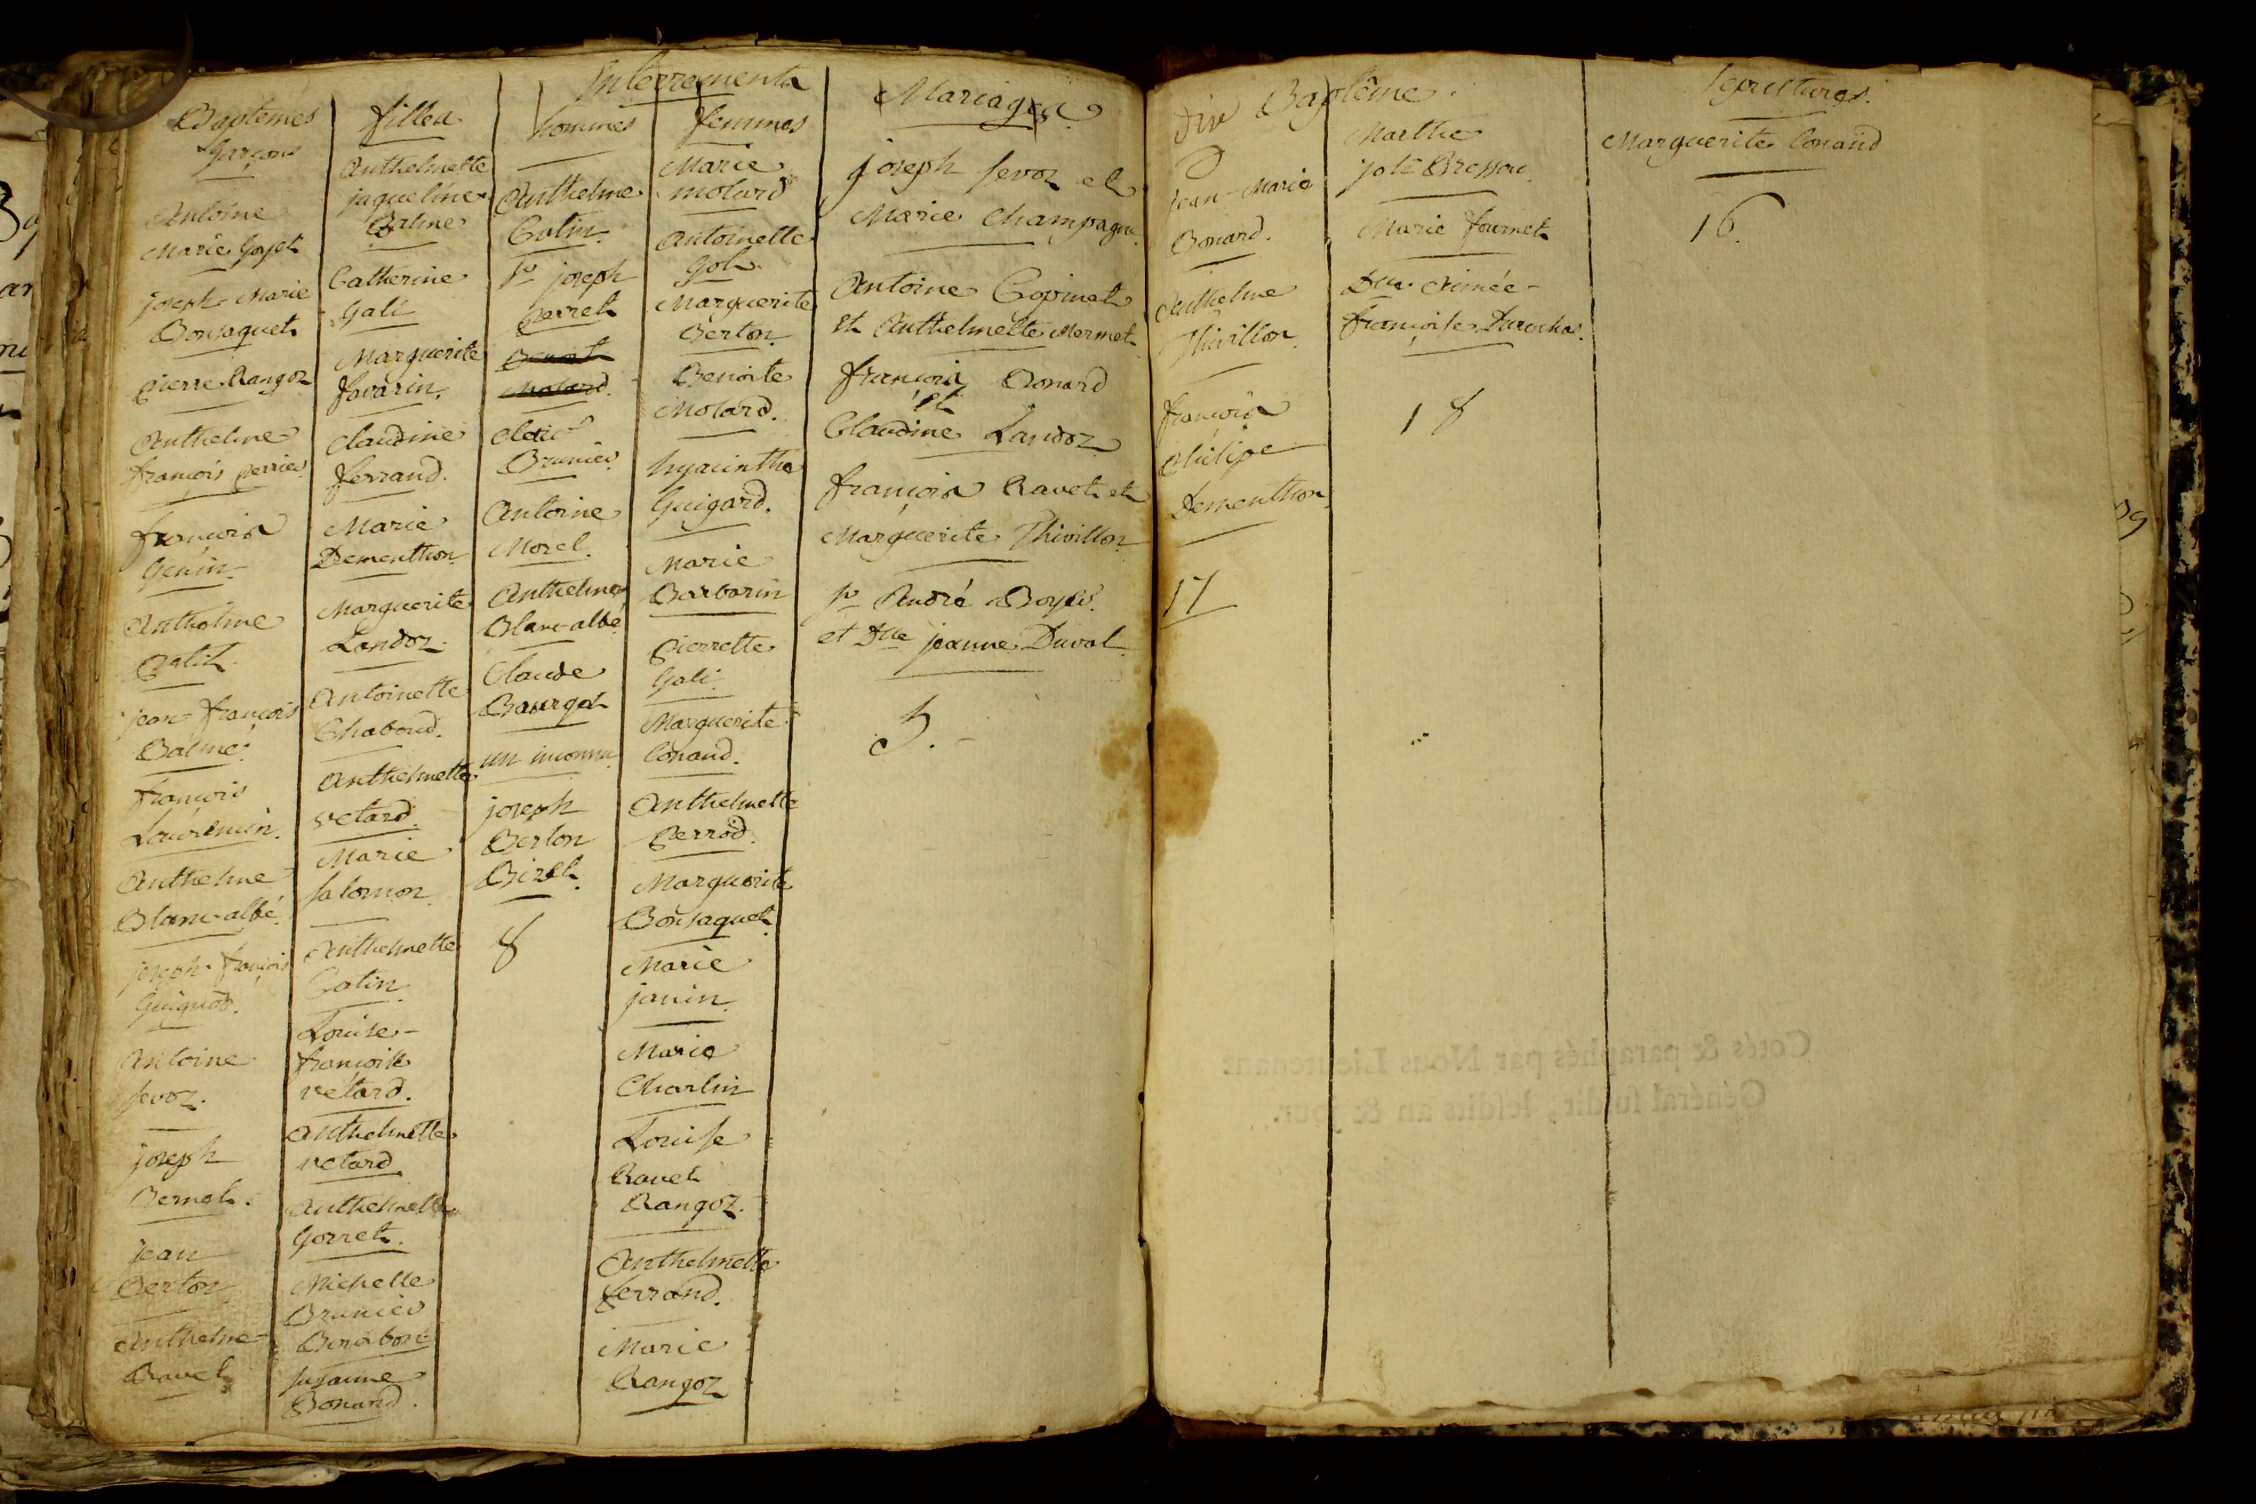 Baptemes
Garçons
Antoine
Marie Goyet
joseph Marie
Bonsaquet
pierre Rangoz
Anthelme
françois perrier
françois
Genin
Anthelme
Petit
jean françois
Balme
françois
Laurencin
Anthelme
Blanc-albé
joseph françois
Guignod
Antoine
sevoz
joseph
Bernet
jean
Berton
Anthelme
Ravet
filles
Anthelmette
jaqueline
Balme
Catherine
Gali
Marguerite
favarin
Claudine
ferrand
Marie
Dementhon
Marguerite
Landoz
Antoinette
Chaboud
Anthelmette
vetard
Marie
salomon
Anthelmette
Catin
Louise
françoise
vetard
Anthelmette
vetard
Anthelmette
Gorret
Michelle
Brunier
Susanne
Bonard
Interrements
hommes
Anthelme
Catin
Sr joseph
perret
Benoit
Molard
Brunier
Antoine
Morel
Anthelme
Blanc-albé
Claude
Bourgot
un inconnu
joseph
Berton
Bizet
8
femmes
Marie
molard
Antoinette
Got
Marguerite
Berton
Benoite
Molard
hyacinthe
Guigard
Marie
Barbarin
pierrette
Gali
Marguerite
Conand
Anthelmette
Perrod
Marguerite
Bonsaquet
Marie
janin
Marie
Charlin
Louise
Ravet
Rangoz
Anthelmette
ferrand
Marie
Rangoz
Mariages
joseph sevoz et
Marie Champagne
Antoine Copinet
et Anthelmette Mermet
françois Bonard
et
Claudine Landoz
françois Ravet et
Marguerite Thivillon
Sr André Boyer
et Dlle jeanne Duval
5.
Baptême
jean-Marie
Bonard
Anthelme
Thivillon
françois
philipe
Dementhon
17
Marthe
Marie fournet
Dlle Aimée
françoise Durochas
18
sepultures
Marguerite Conand
16.
Cotés & paraphés par Nous Lieutenant
Général susdit, lesdits an & jour.